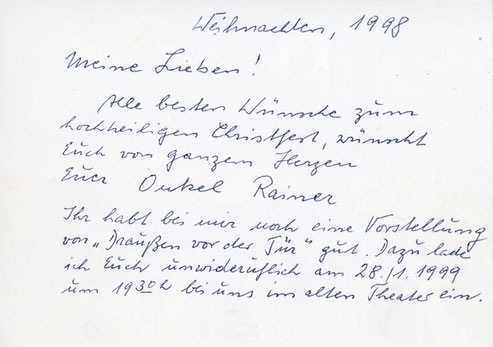 Weihnachten, 1998
Meine Lieben!
Alle besten Wünsche zum
hochheiligen Christfest, wünscht
Euch von ganzem Herzen
Euer Onkel Rainer
Ihr habt bei mir noch eine Vorstellung
von „Draußen vor der Tür" gut. Dazu lade
ich Euch unwideruflich am 28./1.1999
um 19³⁰h bei uns im alten Theater ein.